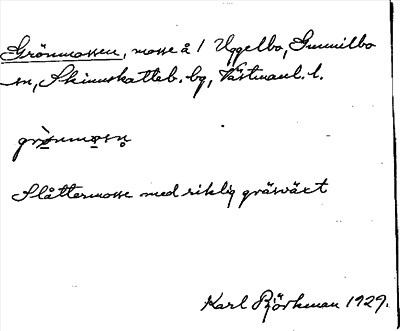 Grönmossen, mosse å 1 Uggelbo, Gunnilbo
sn, Skinnskatteb. bg, Västmanl. l.
grö̀nmo̱sn̥
Slåttermosse med riklig gräsväxt
Karl Björkman 1929.